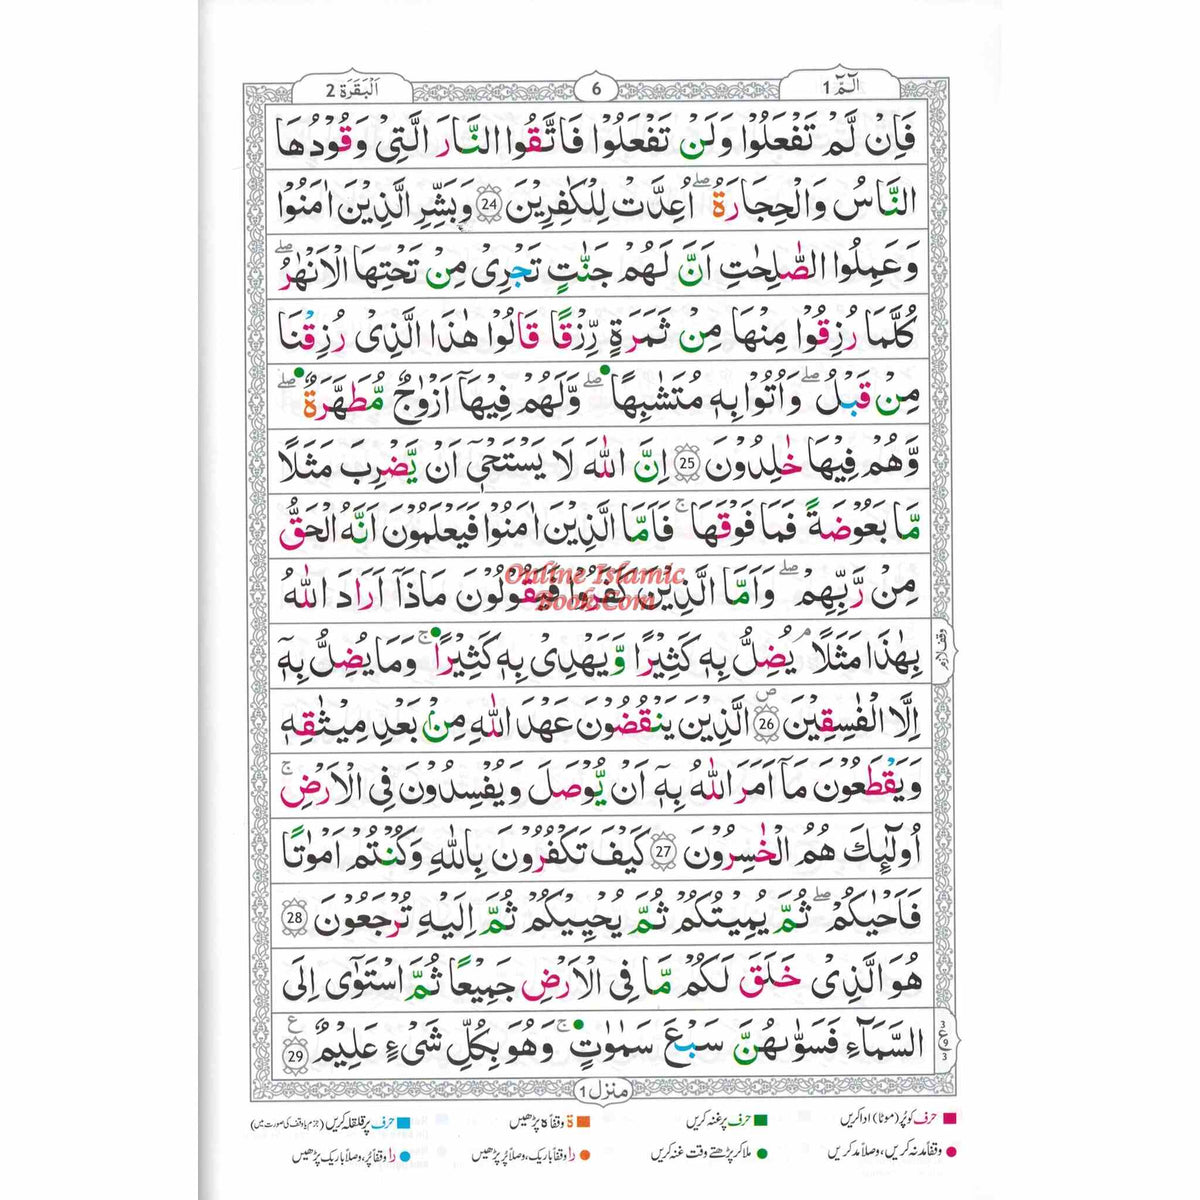 الٓمّٓ 1
6
اَلْبَقَرَة 2
فَاِنْ لَّمْ تَفْعَلُوْا وَلَنْ تَفْعَلُوْا فَاتَّقُوا النَّارَ الَّتِیْ وَقُوْدُهَا
النَّاسُ وَالْحِجَارَةُ ۖۚ اُعِدَّتْ لِلْكٰفِرِیْنَ 24 وَبَشِّرِ الَّذِیْنَ اٰمَنُوْا
وَعَمِلُوا الصّٰلِحٰتِ اَنَّ لَهُمْ جَنّٰتٍ تَجْرِیْ مِنْ تَحْتِهَا الْاَنْهٰرُ ۖ
كُلَّمَا رُزِقُوْا مِنْهَا مِنْ ثَمَرَةٍ رِّزْقًا قَالُوْا هٰذَا الَّذِیْ رُزِقْنَا
مِنْ قَبْلُ ۖ وَاُتُوْا بِهٖ مُتَشَابِهًا ۖ وَلَهُمْ فِیْهَاۤ اَزْوَاجٌ مُّطَهَّرَةٌ ۖ
وَّهُمْ فِیْهَا خٰلِدُوْنَ 25 اِنَّ اللّٰهَ لَا یَسْتَحْیٖۤ اَنْ یَّضْرِبَ مَثَلًا
مَّا بَعُوْضَةً فَمَا فَوْقَهَا ۚ فَاَمَّا الَّذِیْنَ اٰمَنُوْا فَیَعْلَمُوْنَ اَنَّهُ الْحَقُّ
مِنْ رَّبِّهِمْ ۖ وَاَمَّا الَّذِیْنَ كَفَرُوْا فَیَقُوْلُوْنَ مَاذَاۤ اَرَادَ اللّٰهُ
Online Islamic
Book.Com
بِهٰذَا مَثَلًا ۘ یُضِلُّ بِهٖ كَثِیْرًا وَّیَهْدِیْ بِهٖ كَثِیْرًا ۚ وَمَا یُضِلُّ بِهٖۤ
وقف لازم
اِلَّا الْفٰسِقِیْنَ 26 ص الَّذِیْنَ یَنْقُضُوْنَ عَهْدَ اللّٰهِ مِنْۢ بَعْدِ مِیْثٰقِهٖ
وَیَقْطَعُوْنَ مَاۤ اَمَرَ اللّٰهُ بِهٖۤ اَنْ یُّوْصَلَ وَیُفْسِدُوْنَ فِی الْاَرْضِ ۚ
اُولٰٓئِكَ هُمُ الْخٰسِرُوْنَ 27 كَیْفَ تَكْفُرُوْنَ بِاللّٰهِ وَكُنْتُمْ اَمْوَاتًا
فَاَحْیَاكُمْ ۖ ثُمَّ یُمِیْتُكُمْ ثُمَّ یُحْیِیْكُمْ ثُمَّ اِلَیْهِ تُرْجَعُوْنَ 28
هُوَ الَّذِیْ خَلَقَ لَكُمْ مَّا فِی الْاَرْضِ جَمِیْعًا ثُمَّ اسْتَوٰۤی اِلَی
السَّمَآءِ فَسَوّٰىهُنَّ سَبْعَ سَمٰوٰتٍ ۚ وَهُوَ بِكُلِّ شَیْءٍ عَلِیْمٌ 29 ع
3 ع 3
منزل 1
حرف کو پُر (موٹا) ادا کریں
حرف پر غنہ کریں
ة وقفاً ہ پڑھیں
حرف پر قلقلہ کریں (جزم یا وقف کی صورت میں)
وقفاً مد نہ کریں، وصلاً مد کریں
ملا کر پڑھتے وقت غنہ کریں
را وقفاً باریک، وصلاً پُر پڑھیں
را وقفاً پُر، وصلاً باریک پڑھیں